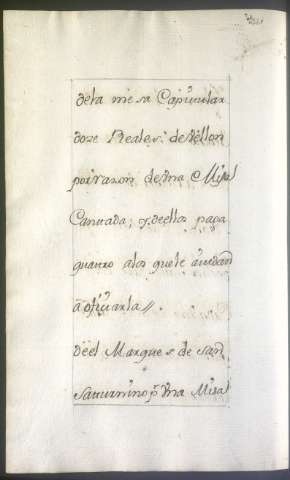 de la mesa Capitular
doze Reales, de vellon
por razon de vna Misa
Cantada; y de ellos paga
quatro a los que le ayudan
a oficiarla //.
de el Marques de San
Saturnino p.r vna Misa